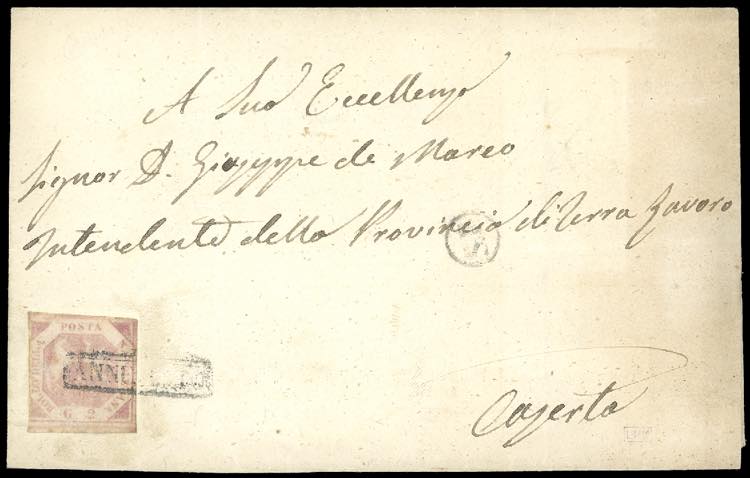 A Sua Eccellenza
Signor D. Giuseppe de Marco
Intendente della Provincia di Terra Lavoro
POSTA
BOLLO DELLA
NAP.
G. 2
ANNULLATO
Caserta